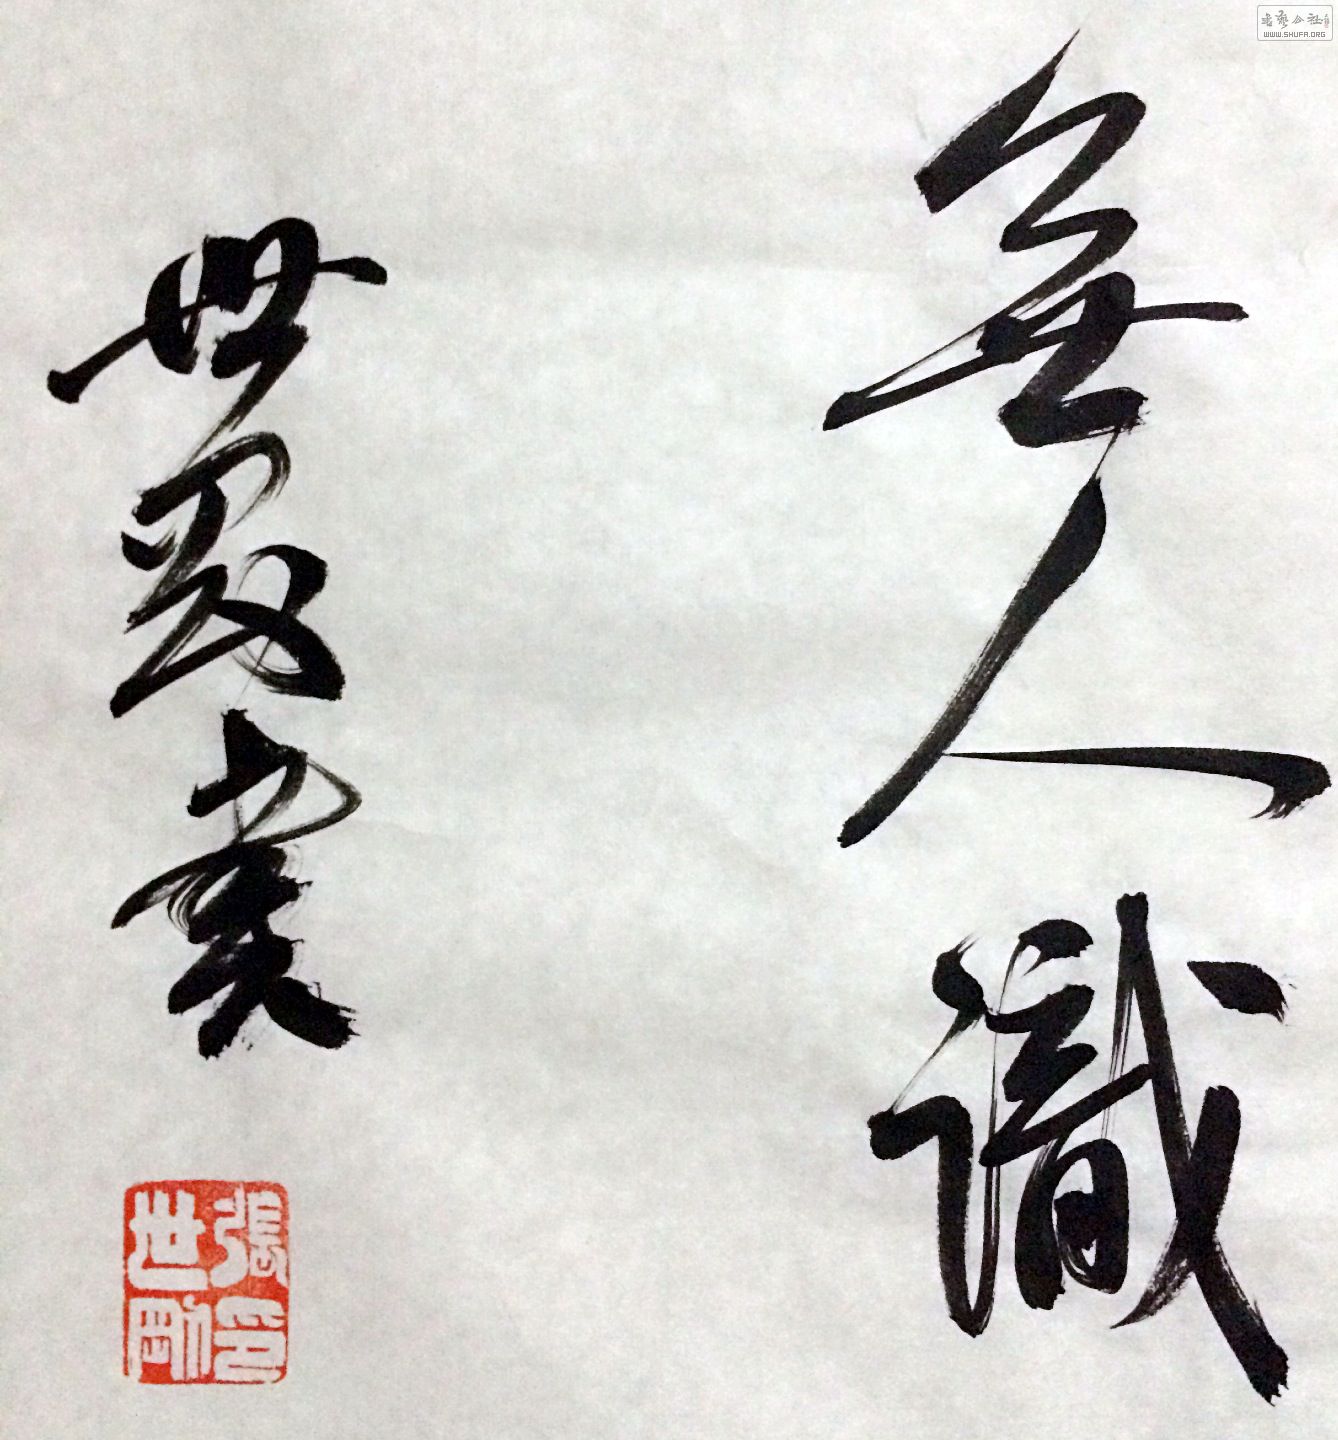 無人識
世剛書
張世剛印
書藝公社
WWW.SHUFA.ORG